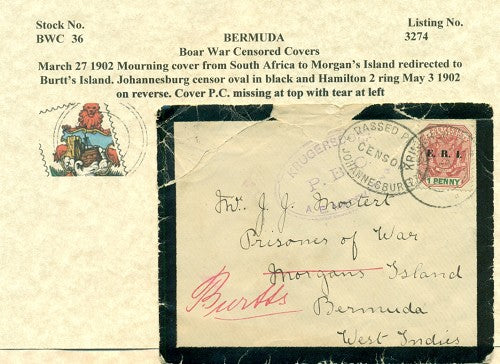 Stock No.
BWC 36
BERMUDA
Listing No.
3274
Boar War Censored Covers
March 27 1902 Mourning cover from South Africa to Morgan's Island redirected to
Burtt's Island. Johannesburg censor oval in black and Hamilton 2 ring May 3 1902
on reverse. Cover P.C. missing at top with tear at left
PASSED P
CENSOR
JOHANNESBURG
KRUGERS
P. B.
E. R. I.
1 PENNY
Mr. J. J. Mostert
Prisoners of War
Morgans Island
Burtts
Bermuda
West Indies